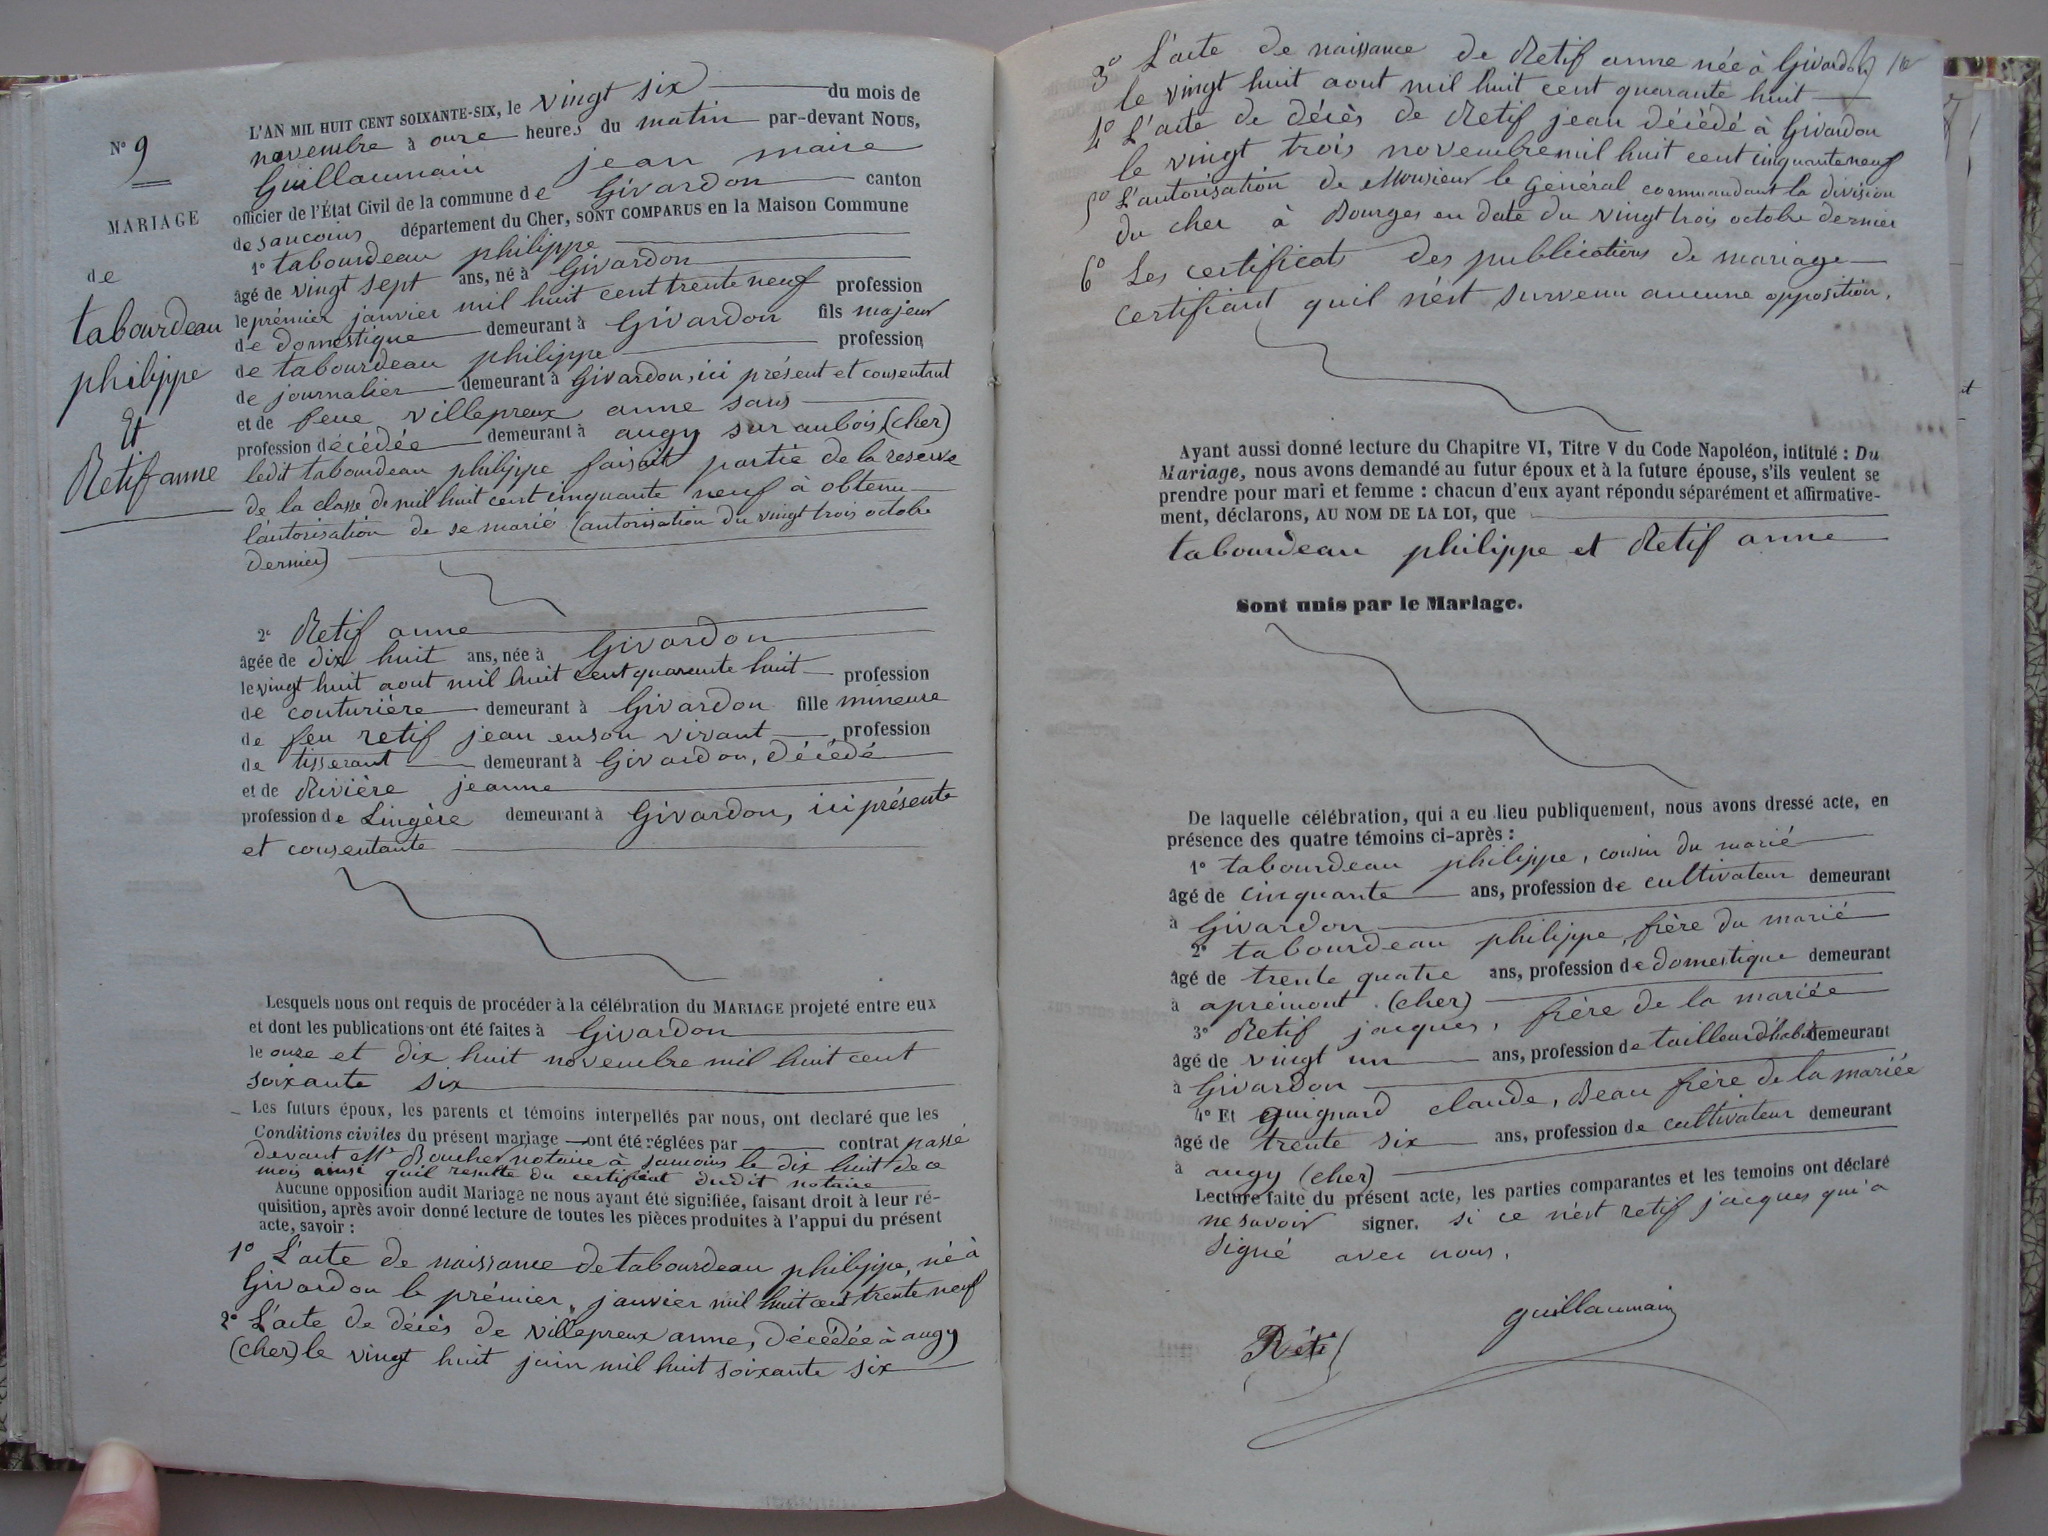 N° 9
MARIAGE
de
tabourdeau
philippe
Et
Retif anne
L'AN MIL HUIT CENT SOIXANTE-SIX, le vingt six du mois de
novembre à onze heures du matin par-devant Nous,
Guillaumain jean maire
officier de l'État Civil de la commune de Givardon canton
de Sancoins département du Cher, SONT COMPARUS en la Maison Commune
1° tabourdeau philippe
âgé de vingt sept ans, né à Givardon
le prémier janvier mil huit cent trente neuf profession
de domestique demeurant à Givardon fils majeur
de tabourdeau philippe profession
de journalier demeurant à Givardon, ici présent et consentant
et de feue villepreux anne sans
profession décédée demeurant à augy sur aubois (cher)
ledit tabourdeau philippe faisait partie de la reserve
de la classe de mil huit cent cinquante neuf à obtenu
l'autorisation de se marié (autorisation du vingt trois octobre
dernier)
2° Retif anne
âgée de dix huit ans, née à Givardon
le vingt huit aout mil huit cent quarante huit profession
de couturière demeurant à Givardon fille mineure
de feu retif jean en son vivant profession
de tisserant demeurant à Givardon, décédé
et de Rivière jeanne
profession de Lingère demeurant à Givardon, ici présente
et consentante
Lesquels nous ont requis de procéder à la célébration du MARIAGE projeté entre eux
et dont les publications ont été faites à Givardon
le onze et dix huit novembre mil huit cent
soixante six
Les futurs époux, les parents et témoins interpellés par nous, ont declaré que les
Conditions civiles du présent mariage ont été réglées par contrat passé
devant Me Boucher notaire à Sancoins le dix huit de ce
mois ainsi quil resulte du certificat dudit notaire
Aucune opposition audit Mariage ne nous ayant été signifiée, faisant droit à leur ré-
quisition, après avoir donné lecture de toutes les pièces produites à l'appui du présent
acte, savoir :
1° L'acte de naissance de tabourdeau philippe, né à
Givardon le prémier, janvier mil huit cent trente neuf
2° L'acte de décès de villepreux anne, décédée à augy
(cher) le vingt huit juin mil huit soixante six
3° L'acte de naissance de Retif anne née à Givardon
le vingt huit aout mil huit cent quarante huit
4° L'acte de décès de Retif jean décédé à Givardon
le vingt trois novembre mil huit cent cinquante neuf
5° L'autorisation de Monsieur le Général commandant la division
du cher à Bourges en date du vingt trois octobre dernier
6° Les certificats des publications de mariage
certifiant quil n'est survenu aucune opposition.
Ayant aussi donné lecture du Chapitre VI, Titre V du Code Napoléon, intitulé : Du
Mariage, nous avons demandé au futur époux et à la future épouse, s'ils veulent se
prendre pour mari et femme : chacun d'eux ayant répondu séparément et affirmative-
ment, déclarons, AU NOM DE LA LOI, que
tabourdeau philippe et Retif anne
Sont unis par le Mariage.
De laquelle célébration, qui a eu lieu publiquement, nous avons dressé acte, en
présence des quatre témoins ci-après :
1° tabourdeau philippe, cousin du marié
âgé de cinquante ans, profession de cultivateur demeurant
à Givardon
2° tabourdeau philippe, frère du marié
âgé de trente quatre ans, profession de domestique demeurant
à aprémont (cher)
3° Retif jacques, frère de la mariée
âgé de vingt un ans, profession de tailleur d'habit demeurant
à Givardon
4° Et guignard claude, Beau frère de la mariée
âgé de trente six ans, profession de cultivateur demeurant
à augy (cher)
Lecture faite du présent acte, les parties comparantes et les temoins ont déclaré
ne savoir signer. si ce n'est retif jacques qui a
signé avec nous.
guillaumain